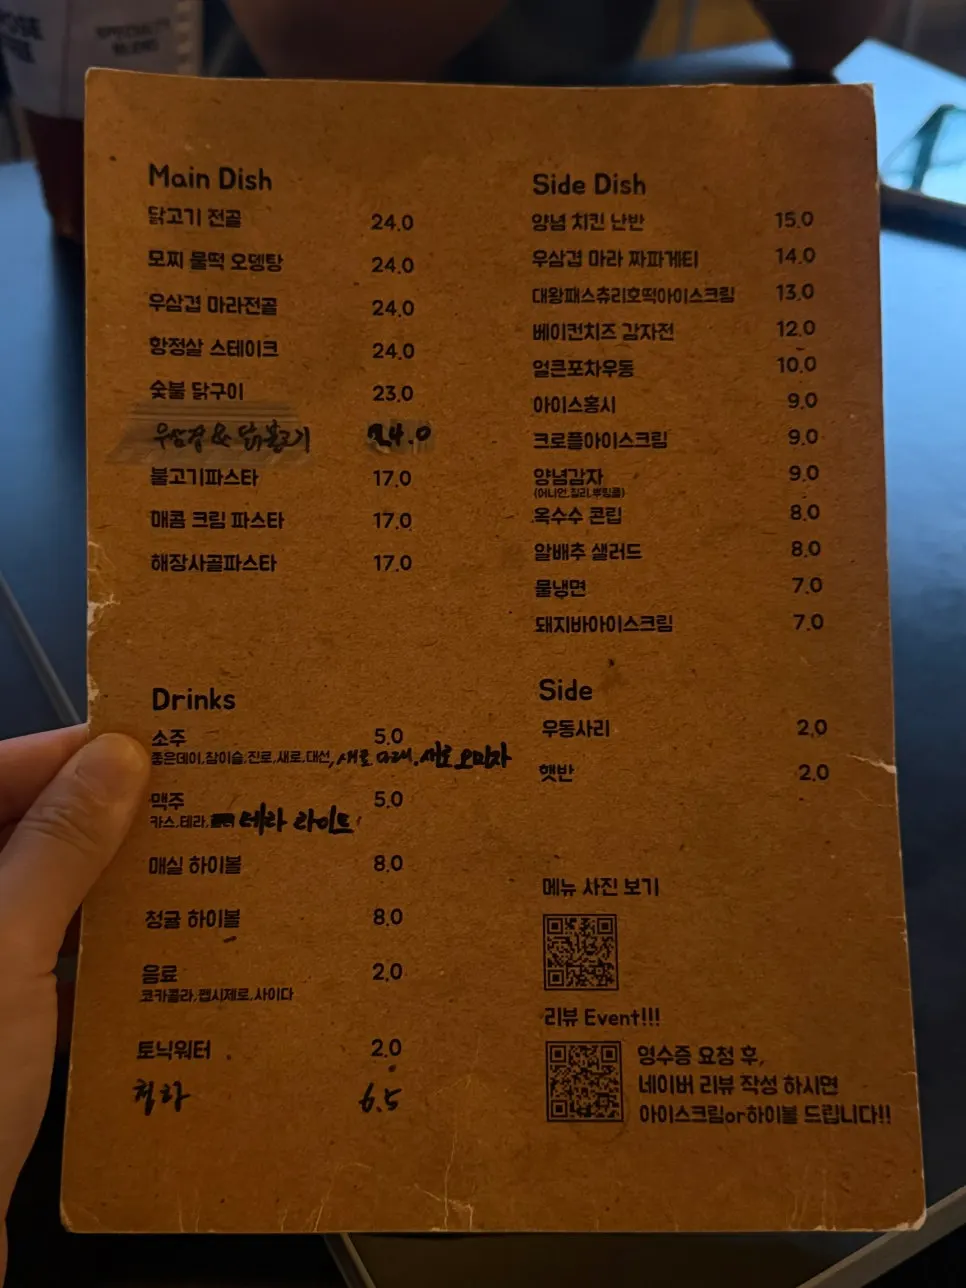 SPECIALTY
BLEND
Main Dish
닭고기 전골 24.0
모찌 물떡 오뎅탕 24.0
우삼겹 마라전골 24.0
항정살 스테이크 24.0
숯불 닭구이 23.0
우삼겹 & 닭불고기 24.0
불고기파스타 17.0
매콤 크림 파스타 17.0
해장사골파스타 17.0
Drinks
소주 5.0
좋은데이,참이슬,진로,새로,대선,새로 다래,새로 오미자
맥주 5.0
카스,테라, 테라 라이트
매실 하이볼 8.0
청귤 하이볼 8.0
음료 2.0
코카콜라,펩시제로,사이다
토닉워터 2.0
청하 6.5
Side Dish
양념 치킨 난반 15.0
우삼겹 마라 짜파게티 14.0
대왕패스츄리호떡아이스크림 13.0
베이컨치즈 감자전 12.0
얼큰포차우동 10.0
아이스홍시 9.0
크로플아이스크림 9.0
양념감자 9.0
(어니언,칠리,뿌링클)
옥수수 콘립 8.0
알배추 샐러드 8.0
물냉면 7.0
돼지바아이스크림 7.0
Side
우동사리 2.0
햇반 2.0
메뉴 사진 보기
리뷰 Event!!!
영수증 요청 후,
네이버 리뷰 작성 하시면
아이스크림or하이볼 드립니다!!